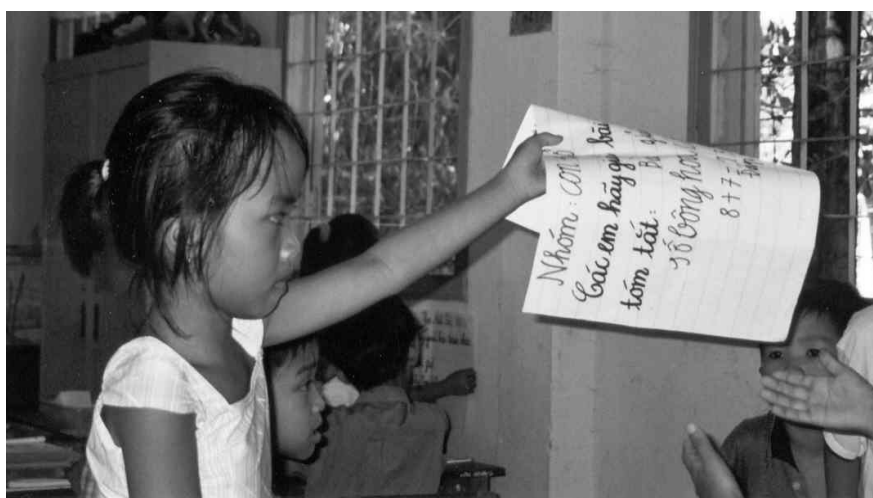 Nhóm: con
Các em hãy bài
tóm tắt:
Số bông hoa
8+7=